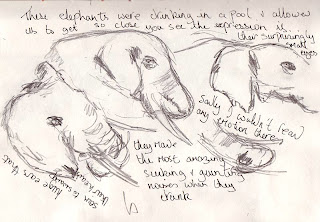 These elephants were drinking in a pool & allowed
us to get so close you see the expression in
their surprisingly
small
eyes
Sadly I couldn't read
any emotion there
they made
the most amazing
sucking & grunting
noises when they
drank
huge ears that
seem to
their